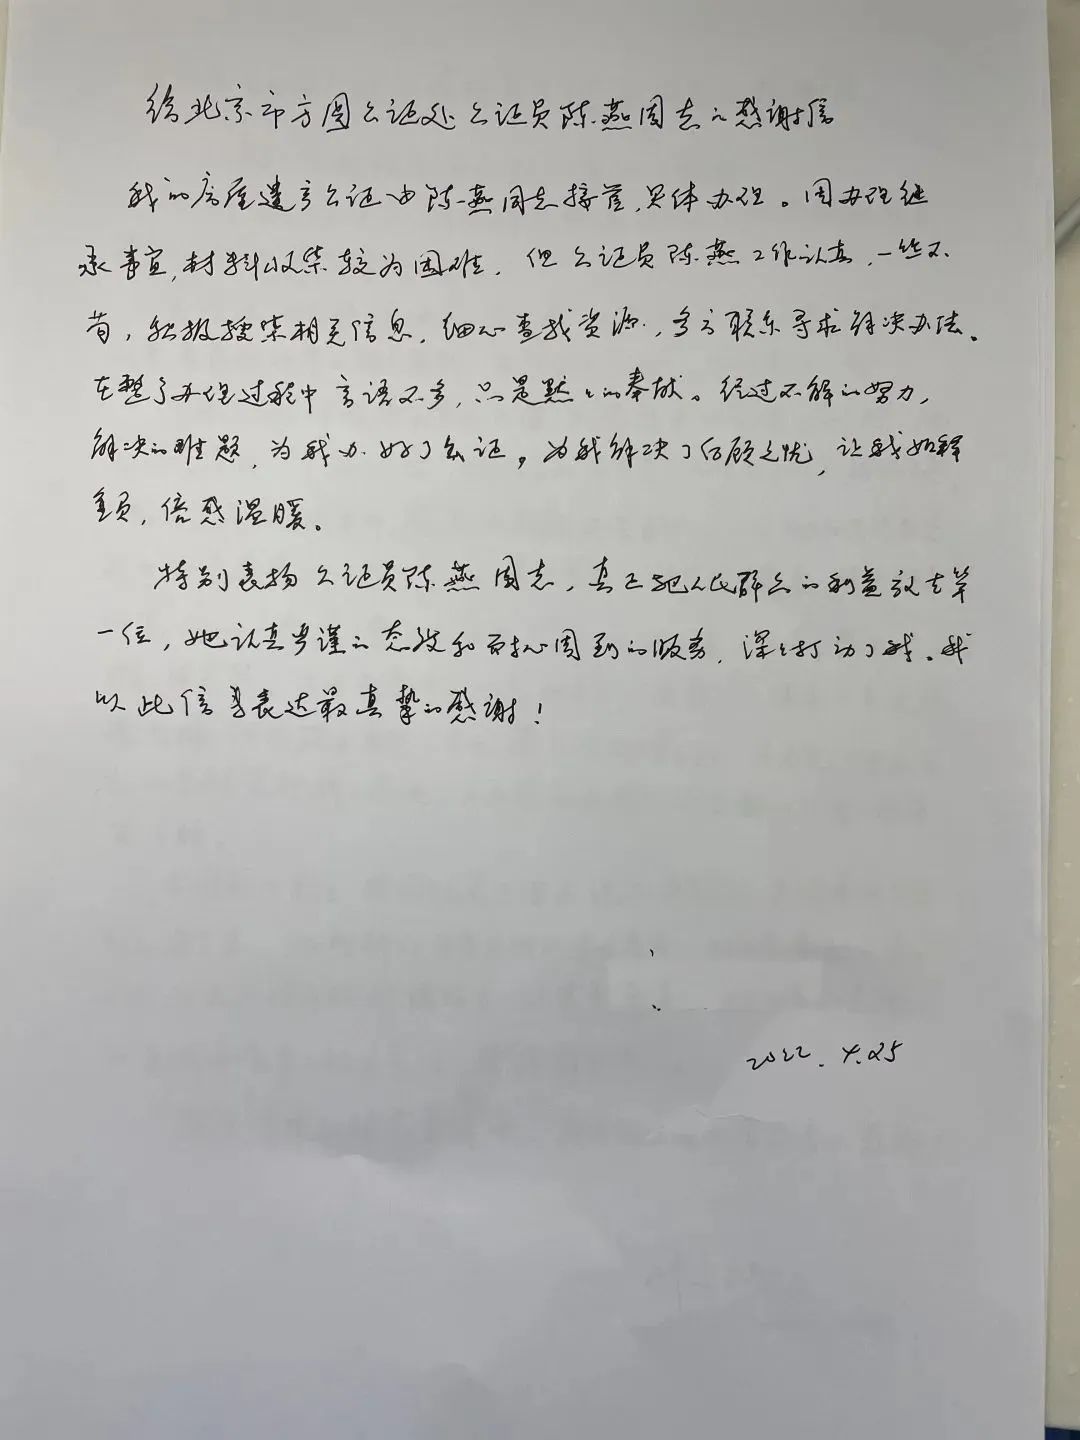 给北京市方圆公证处公证员陈燕同志的感谢信
我的房屋遗言公证由陈燕同志接管,具体办理。因办理继
承事宜,材料收集较为困难,但公证员陈燕工作认真,一丝不
苟,积极搜集相关信息,细心查找资源,多方联系寻求解决办法。
在整个办理过程中言语不多,只是默默的奉献。经过不解的努力,
解决的难题,为我办好了公证。为我解决了后顾之忧,让我如释
重负,倍感温暖。
特别表扬公证员陈燕同志,真正把人民群众的利益放在第
一位,她认真严谨的态度和耐心周到的服务,深深打动了我。我
以此信表达最真挚的感谢!
2022.4.25